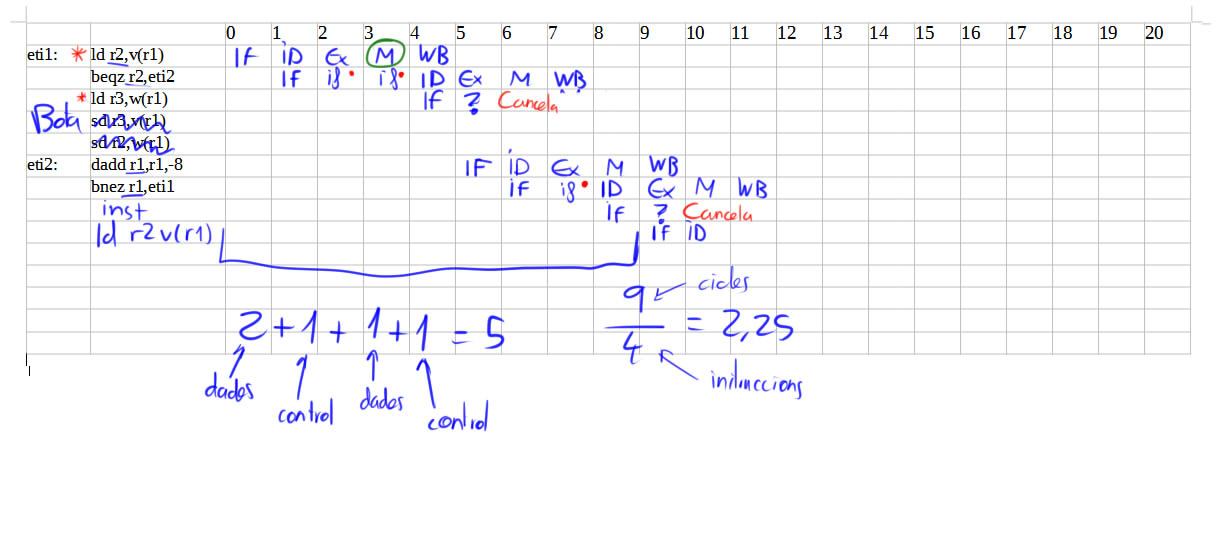 0 1 2 3 4 5 6 7 8 9 10 11 12 13 14 15 16 17 18 19 20
eti1: * ld r2,v(r1) IF ID Ex M WB
beqz r2,eti2 IF if if ID Ex M WB
* ld r3,w(r1) IF ? Cancela
Bota sd r3,v(r1)
sd r2,w(r1)
eti2: dadd r1,r1,-8 IF ID Ex M WB
bnez r1,eti1 IF if ID Ex M WB
inst IF ? Cancela
ld r2 v(r1) IF ID
2+1+1+1=5
9/4 = 2,25
cicles
dades
control
dades
control